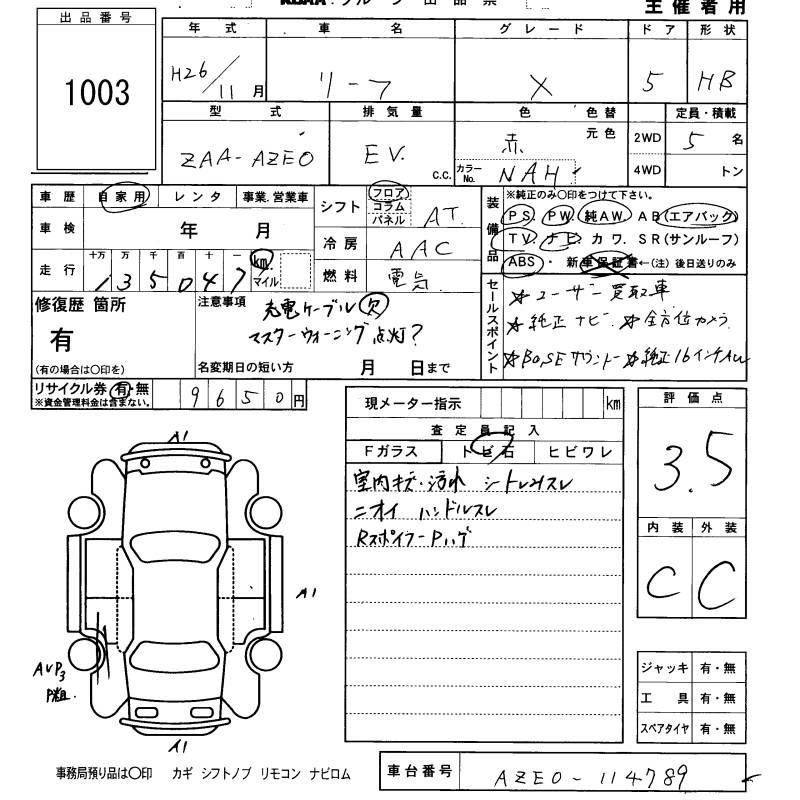 出品番号
1003
主催者用
年式 車名 グレード ドア 形状
H26/11月 リーフ X 5 HB
型式 排気量 色 色替 定員・積載
ZAA-AZE0 EV. C.C. 赤 元色 2WD 5名
カラーNo. NAH 4WD トン
車歴 自家用 レンタ 事業.営業車
シフト フロア コラム パネル AT
車検 年 月
冷房 AAC
走行 十万 万 千 百 十 一
135047 km. マイル
燃料 電気
装備品 ※純正のみ○印をつけて下さい。
PS. PW 純AW AB(エアバック)
TV. ナビ カワ. SR(サンルーフ)
ABS・新車保証書←(注)後日送りのみ
修復歴 箇所
有
(有の場合は○印を)
注意事項 充電ケーブル欠
マスターウォーニング点灯?
名変期日の短い方 月 日まで
セールスポイント
☆ユーザー買取車
☆純正ナビ ☆全方位カメラ
☆BOSEサウンド ☆純正16インチAW
リサイクル券 有・無
※資金管理料金は含まない。
9650円
現メーター指示 km
査定員記入
Fガラス トビ石 ヒビワレ
室内キズ・汚れ シートしみスレ
ニオイ ハンドルスレ
RスポイラーPハゲ
評価点
3.5
内装 外装
C C
A1
A1
AUP3
P粗.
A1
ジャッキ 有・無
工具 有・無
スペアタイヤ 有・無
事務局預り品は○印 カギ シフトノブ リモコン ナビロム
車台番号 AZE0-114789